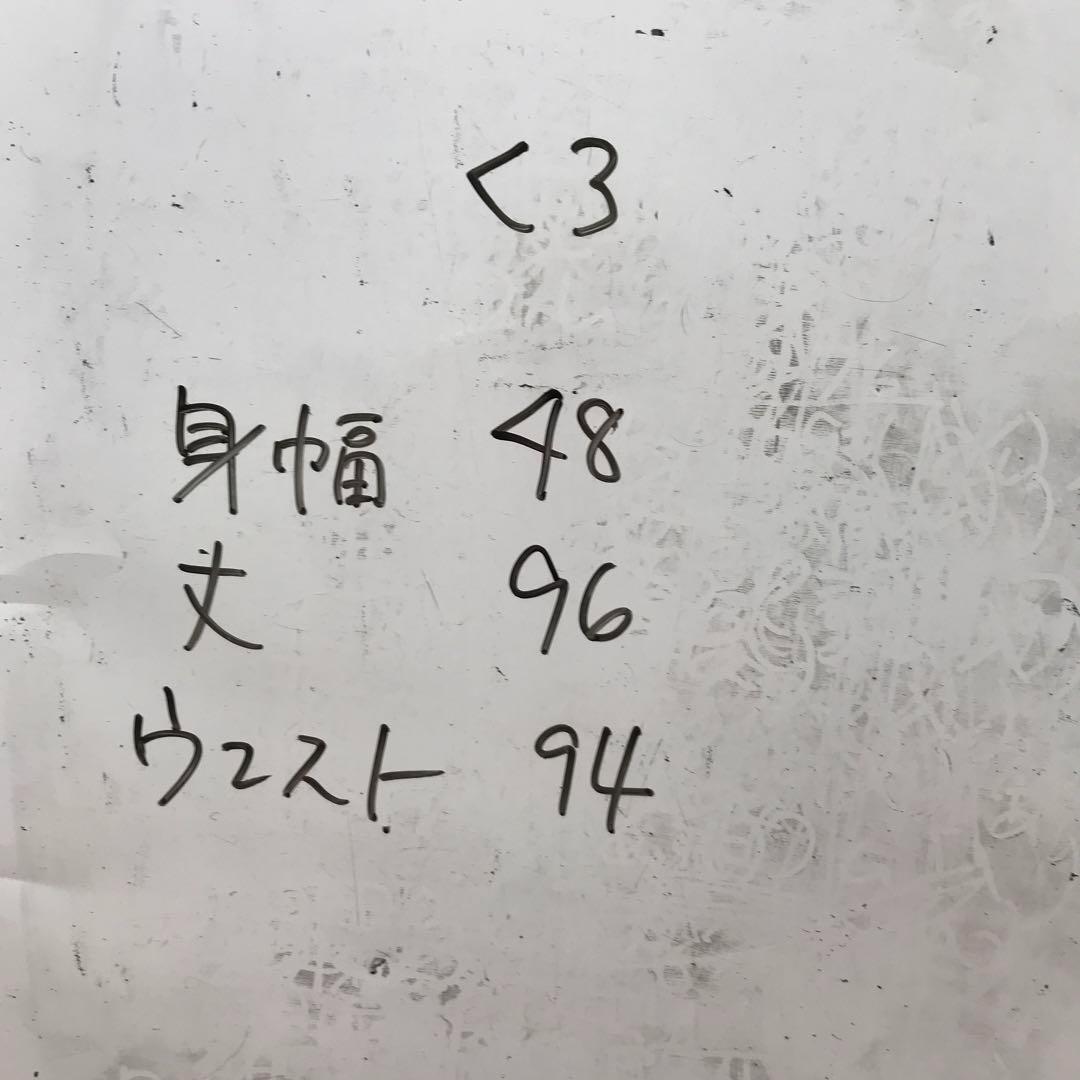 く3
身幅 48
丈 96
ウエスト 94